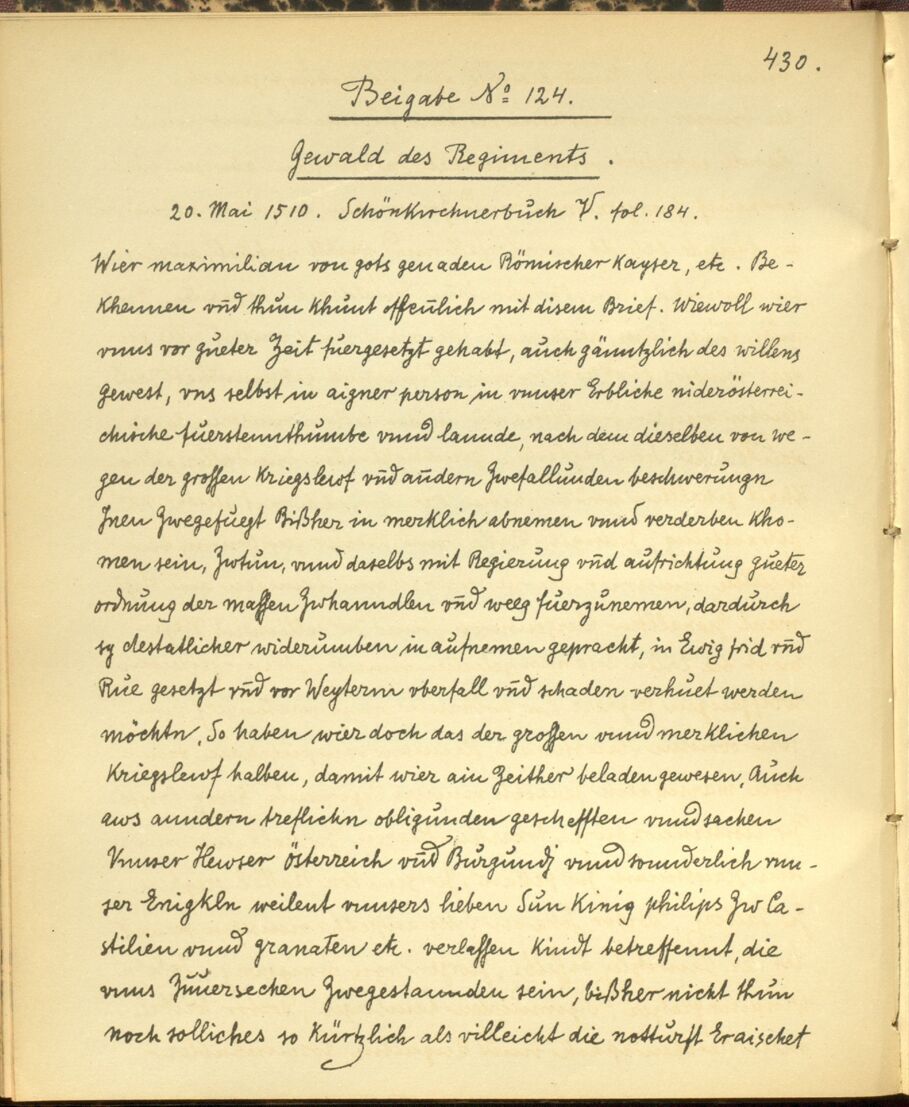 430.
Beigabe No 124.
Gewald des Regiments.
20. Mai 1510. Schönkirchnerbuch V. fol. 184.
Wier maximilian von gots genaden Römischer Kayser, etc. Be-
Khennen vnd thun Khunt offenlich mit disem Brief. Wiewoll wier
vnns vor gueter Zeit fuergesetzt gehabt, auch gänntzlich des willens
gewest, vns selbst in aigner person in vnnser Erbliche niderösterrei-
chische fuerstennthumbe vnnd lannde, nach dem dieselben von we-
gen der grossen Kriegslewf vnd andern Zwefallunden beschwerungn
Jnen Zwegefuegt Bißher in merklich abnemen vnnd verderben Kho-
men sein, Zwtun, vnnd daselbs mit Regierung vnd aufrichtung gueter
ordnung der massen Zwhanndlen vnd weeg fuerzunemen, dardurch
sy destatlicher widerumben in aufnemen gepracht, in Ewig frid vnd
Rue gesetzt vnd vor Weyterm vberfall vnd schaden verhuet werden
möchtn, So haben wier doch das der grossen vnnd merklichen
Kriegslewf halben, damit wier ain Zeither beladen gewesen, Auch
aws anndern treflichn obligunden geschefften vnnd sachen
Vnnser Hewser Österreich vnd Burgundj vnnd sonnderlich vnn-
ser Enigkln weilent vnnsers lieben Sun Kinig philips Zw Ca-
stilien vnnd granaten etc. verlassen Kindt betreffennt, die
vnns Zuuersechen Zwegestannden sein, bißher nicht thun
noch solliches so Kürtzlich als villeicht die notturft Eraischet